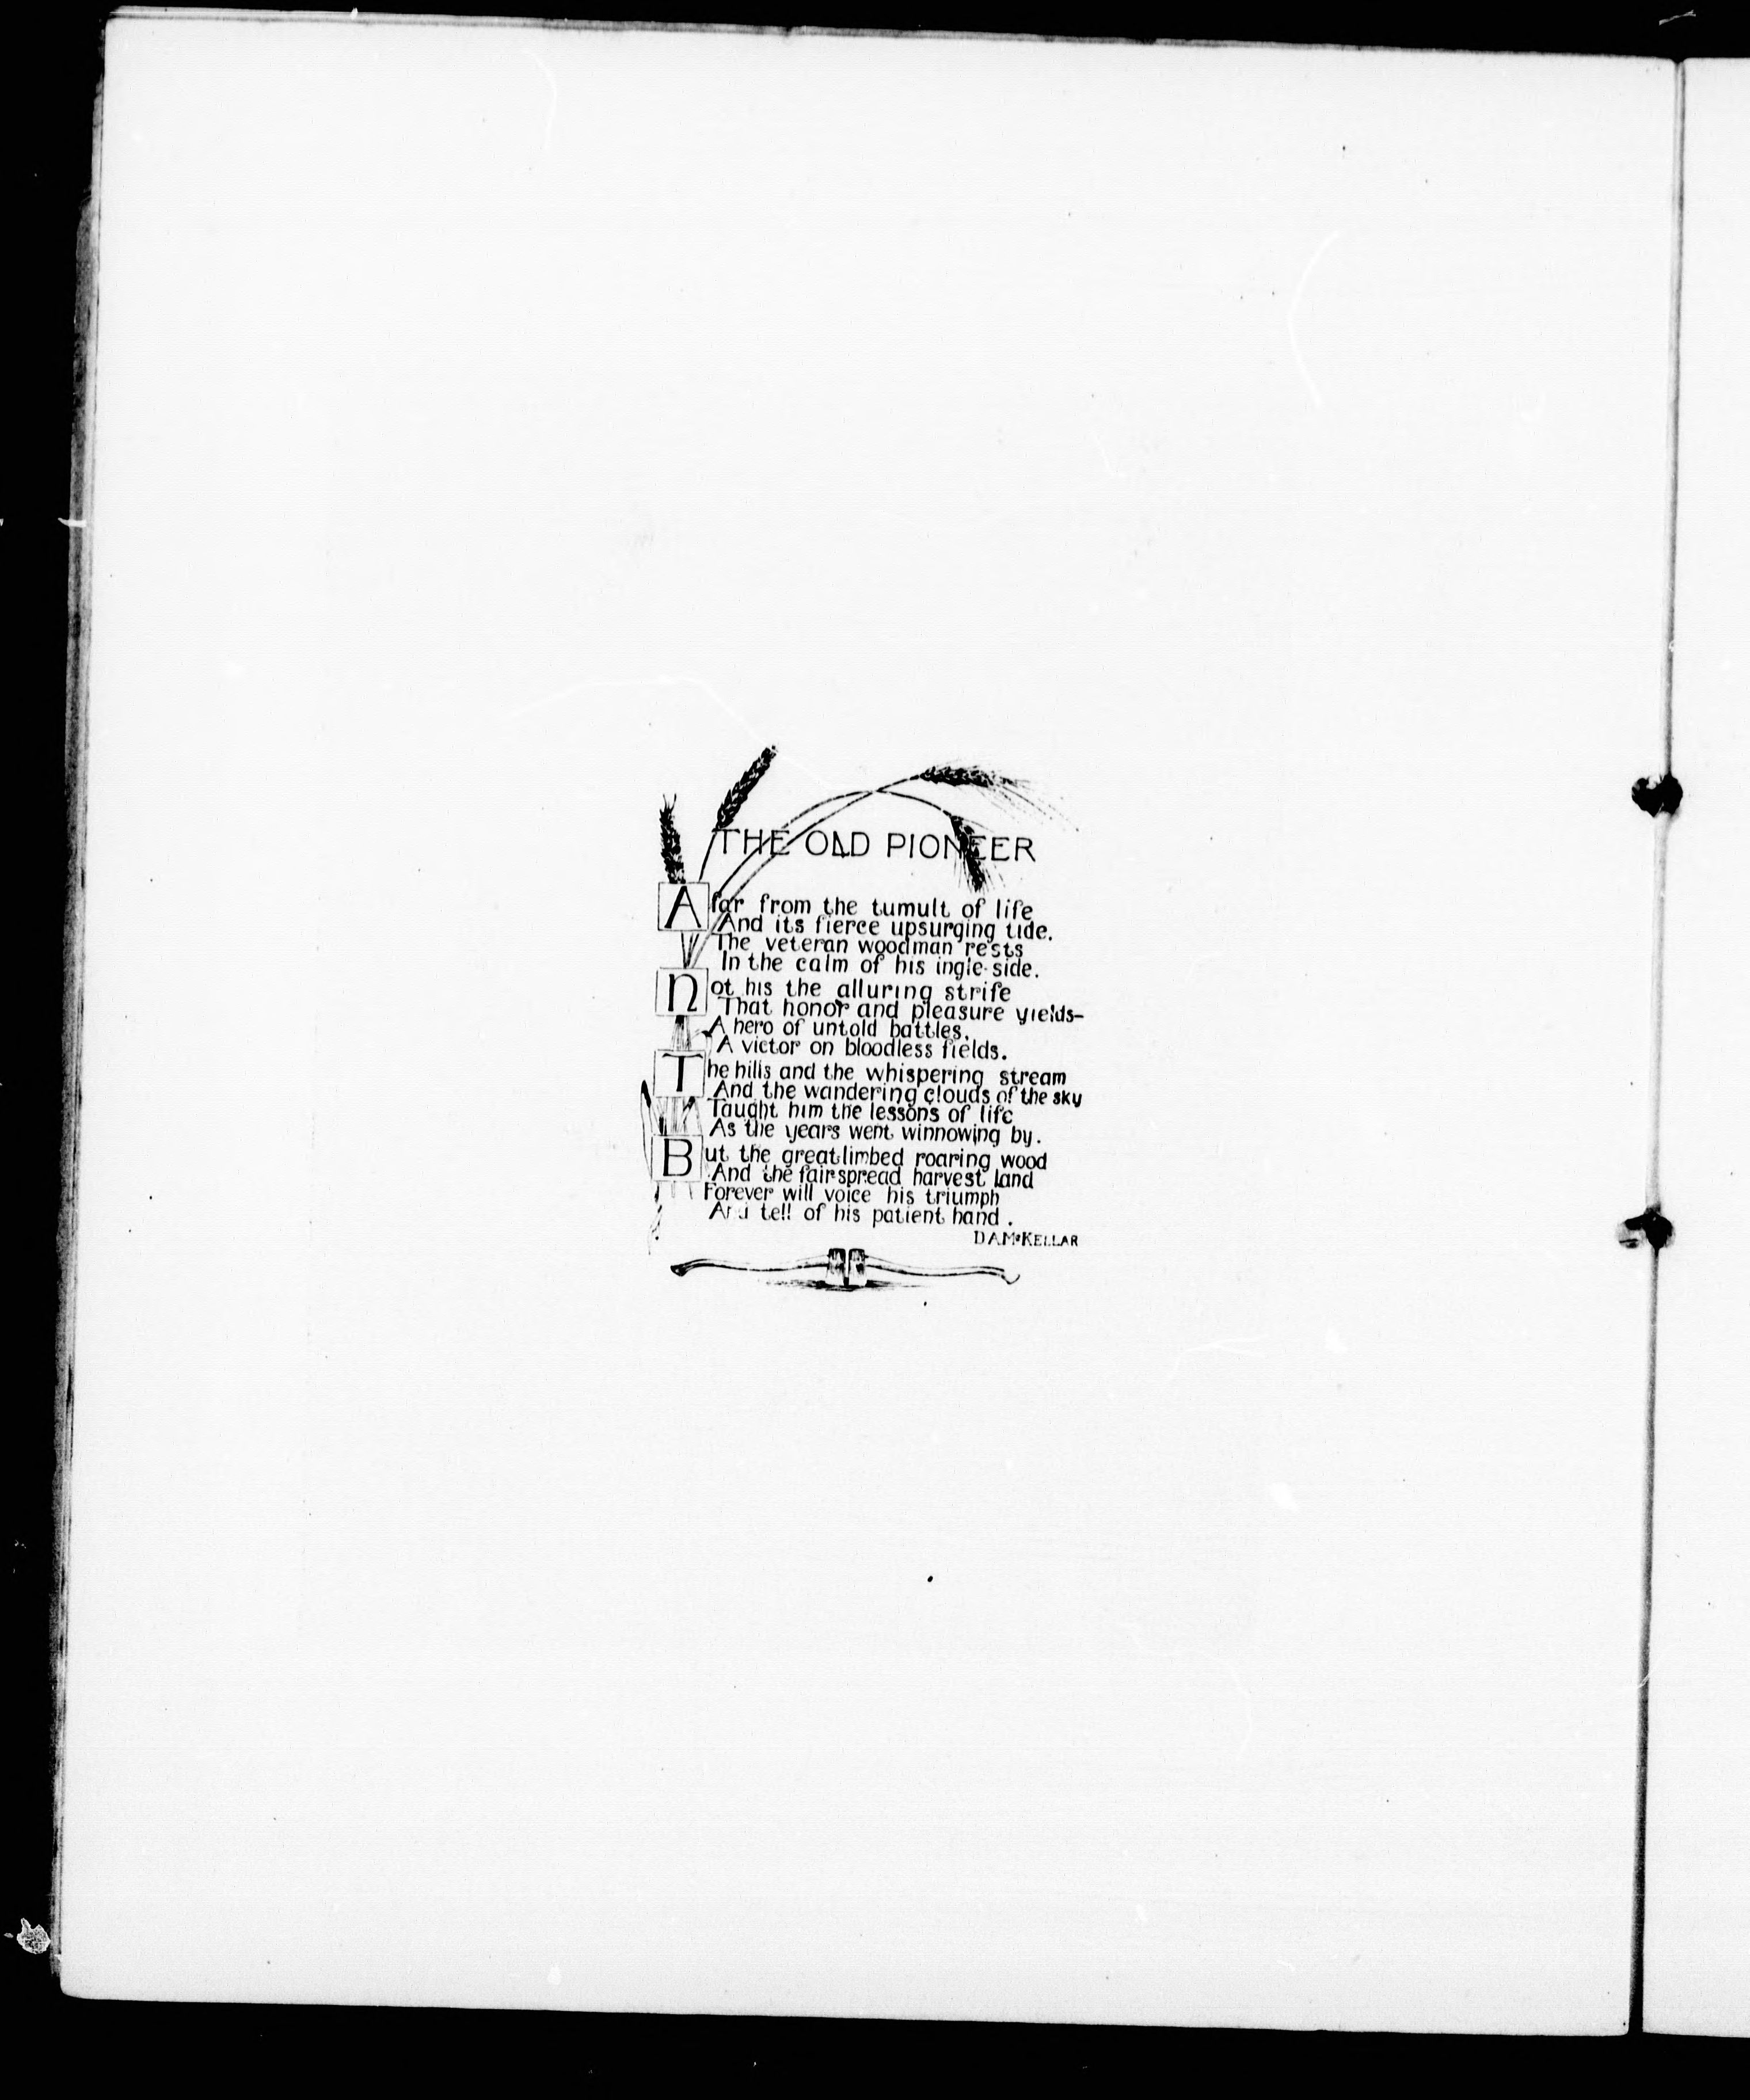 THE OLD PIONEER
Afar from the tumult of life
And its fierce upsurging tide.
The veteran woodman rests
In the calm of his ingle-side.
Not his the alluring strife
That honor and pleasure yields-
A hero of untold battles,
A victor on bloodless fields.
The hills and the whispering stream
And the wandering clouds of the sky
Taught him the lessons of life
As the years went winnowing by.
But the great limbed roaring wood
And the fair spread harvest land
Forever will voice his triumph
And tell of his patient hand.
D.A.McKELLAR